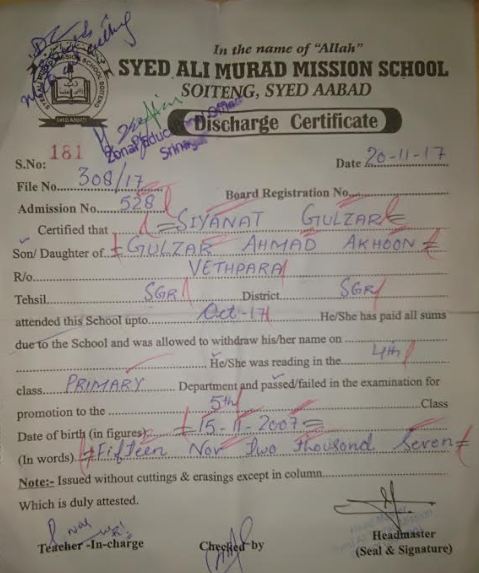 In the name of "Allah"
SYED ALI MURAD MISSION SCHOOL
SOITENG, SYED AABAD
Discharge Certificate
Zonal Education Officer
Srinagar
SYED ALI MURAD MISSION SCHOOL SOITENG
SYED AABAD
S.No: 181
Date 20-11-17
File No. 308/17
Board Registration No.
Admission No. 528
Certified that SIYANAT GULZAR
Son/ Daughter of GULZAR AHMAD AKHOON
R/o. VETHPARA
Tehsil SGR District SGR
attended this School upto Oct-17 He/She has paid all sums
due to the School and was allowed to withdraw his/her name on
He/She was reading in the 4th
class. PRIMARY Department and passed/failed in the examination for
promotion to the 5th Class
Date of birth (in figures) =15-11-2007=
(In words) Fifteen Nov Two Thousand Seven
Note:- Issued without cuttings & erasings except in column
Which is duly attested.
Teacher -In-charge Checked by Headmaster
(Seal & Signature)